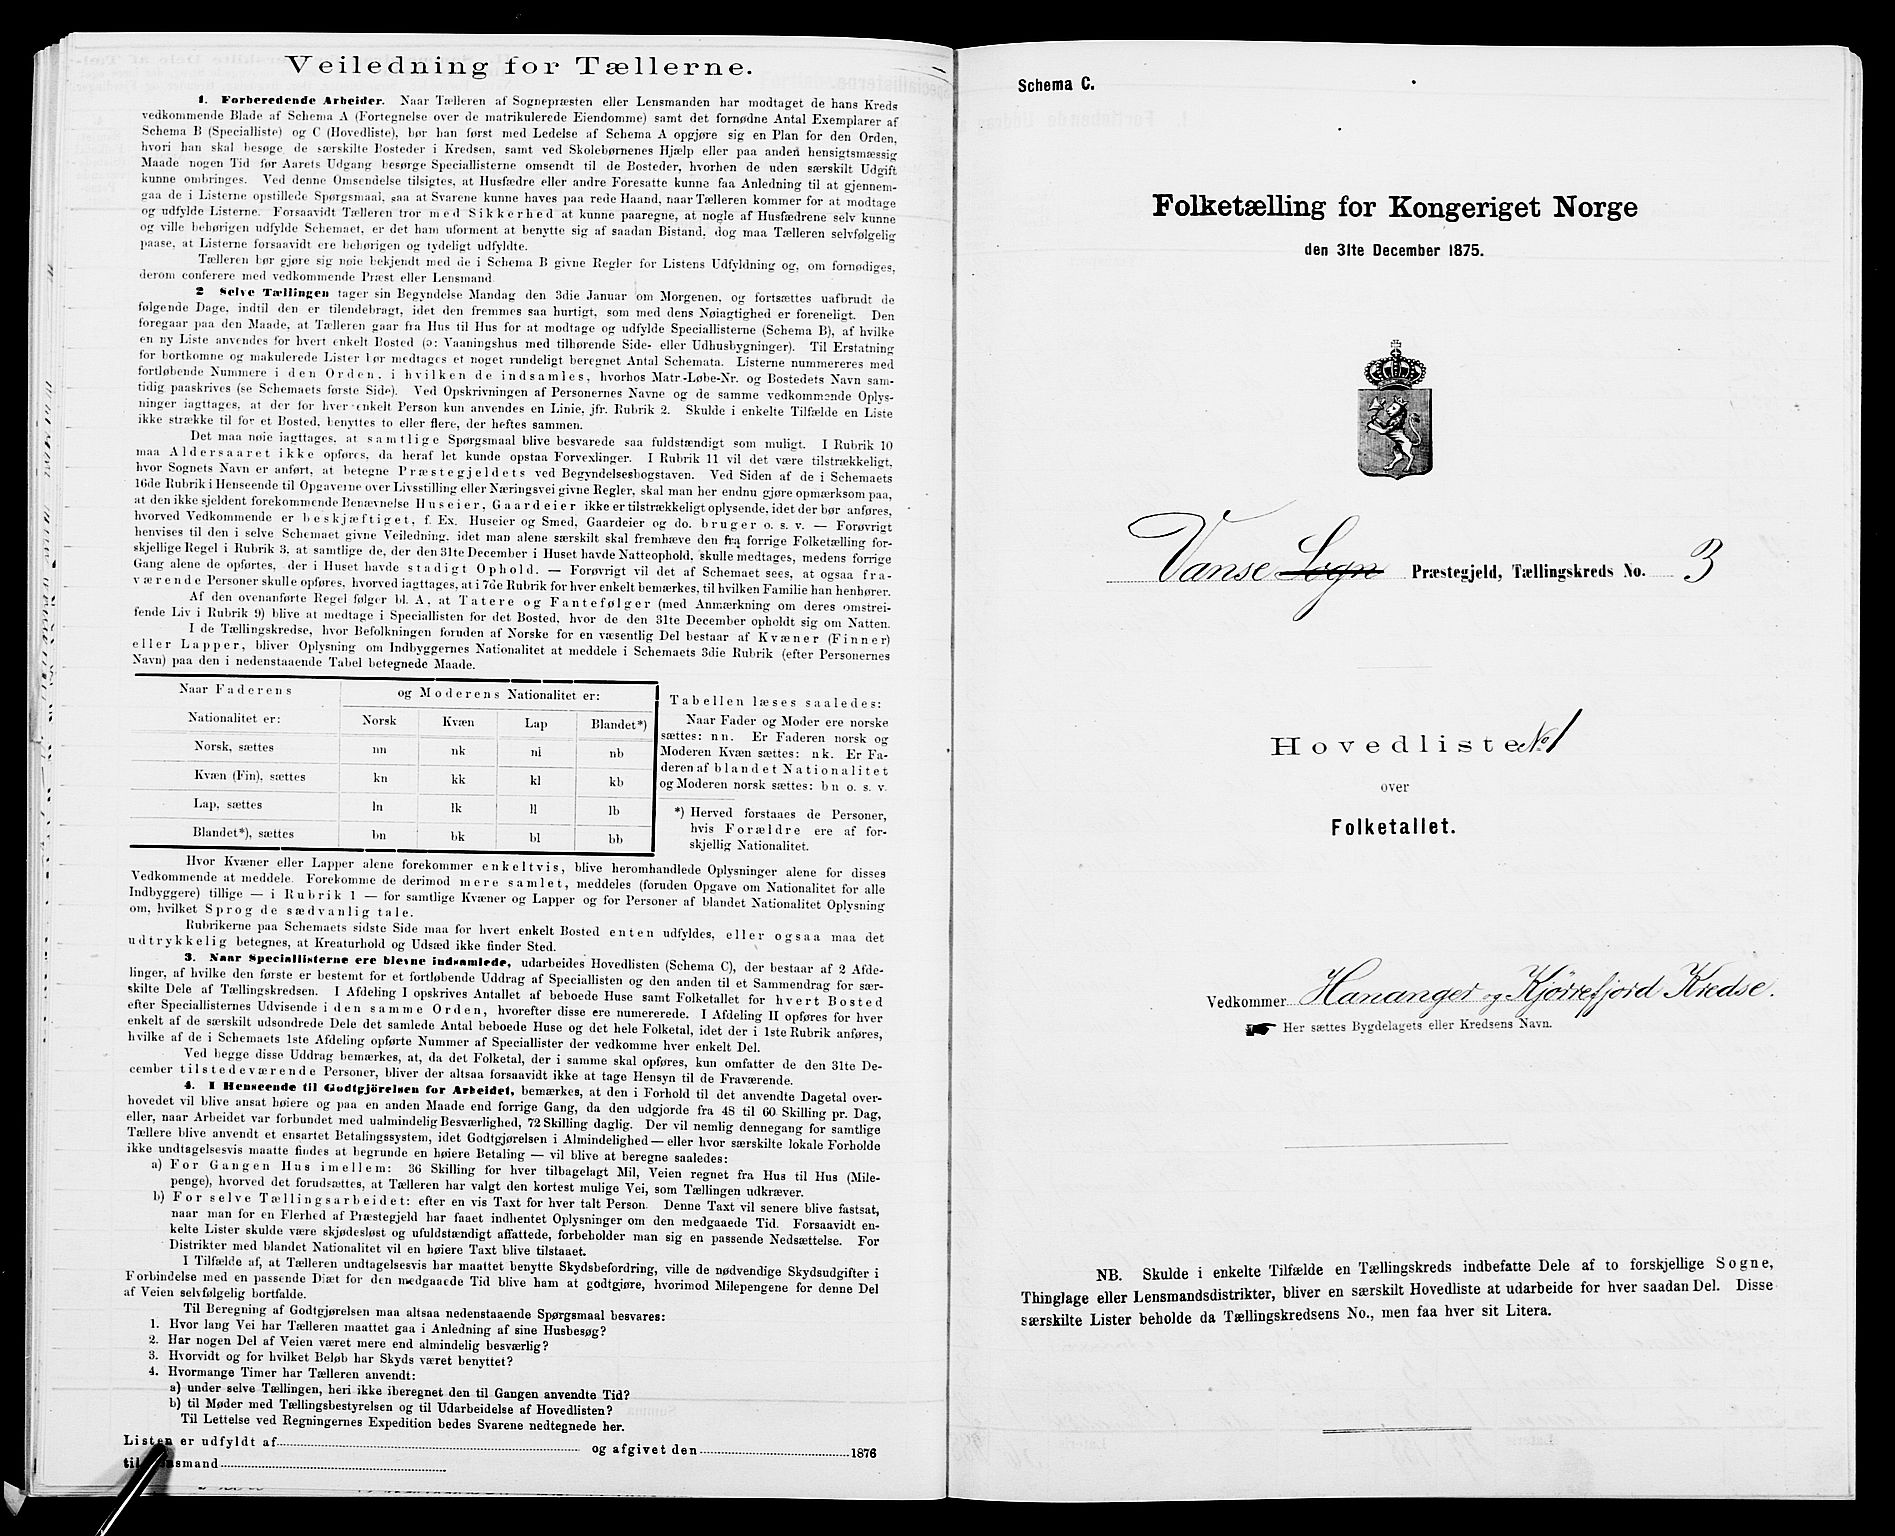 Veiledning for Tællerne.
1. Forberedende Arbeider. Naar Tælleren af Sognepræsten eller Lensmanden har modtaget de hans Kreds
vedkommende Blade af Schema A (Fortegnelse over de matrikulerede Eiendomme) samt det fornødne Antal Exemplarer af
Schema B (Specialliste) og C (Hovedliste), bør han først med Ledelse af Schema A opgjøre sig en Plan for den Orden,
hvori han skal besøge de særskilte Bosteder i Kredsen, samt ved Skolebørnenes Hjælp eller paa anden hensigtsmæssig
Maade nogen Tid før Aarets Udgang besørge Speciallisterne omsendt til de Bosteder, hvorhen de uden særskilt Udgift
kunne ombringes. Ved denne Omsendelse tilsigtes, at Husfædre eller andre Foresatte kunne faa Anledning til at gjennem-
gaa de i Listerne opstillede Spørgsmaal, saa at Svarene kunne haves paa rede Haand, naar Tælleren kommer for at modtage
og udfylde Listerne. Forsaavidt Tælleren tror med Sikkerhed at kunne paaregne, at nogle af Husfædrene selv kunne
og ville behørigen udfylde Schemaet, er det ham uforment at benytte sig af saadan Bistand, dog maa Tælleren selvfølgelig
paase, at Listerne forsaavidt ere behørigen og tydeligt udfyldte.
Tælleren bør gjøre sig nøie bekjendt med de i Schema B givne Regler for Listens Udfyldning og, om fornødiges,
derom conferere med vedkommende Præst eller Lensmand.
2 Selve Tællingen tager sin Begyndelse Mandag den 3die Januar om Morgenen, og fortsættes uafbrudt de
følgende Dage, indtil den er tilendebragt, idet den fremmes saa hurtigt, som med dens Nøiagtighed er foreneligt. Den
foregaar paa den Maade, at Tælleren gaar fra Hus til Hus for at modtage og udfylde Speciallisterne (Schema B), af hvilke
en ny Liste anvendes for hvert enkelt Bosted (ɔ: Vaaningshus med tilhørende Side- eller Udhusbygninger). Til Erstatning
for bortkomne og makulerede Lister bør medtages et noget rundeligt beregnet Antal Schemata. Listerne nummereres med
fortløbende Nummere i den Orden, i hvilken de indsamles, hvorhos Matr.-Løbe-Nr. og Bostedets Navn sam-
tidig paaskrives (se Schemaets første Side). Ved Opskrivningen af Personernes Navne og de samme vedkommende Oplys-
ninger iagttages, at der for hver enkelt Person kun anvendes en Linie, jfr. Rubrik 2. Skulde i enkelte Tilfælde en Liste
ikke strække til for et Bosted, benyttes to eller flere, der heftes sammen.
Det maa nøie iagttages, at samtlige Spørgsmaal blive besvarede saa fuldstændigt som muligt. I Rubrik 10
maa Aldersaaret ikke opføres, da heraf let kunde opstaa Forvexlinger. I Rubrik 11 vil det være tilstrækkeligt,
hvor Sognets Navn er anført, at betegne Præstegjeldets ved Begyndelsesbogstaven. Ved Siden af de i Schemaets
16de Rubrik i Henseende til Opgaverne over Livsstilling eller Næringsvei givne Regler, skal man her endnu gjøre opmærksom paa,
at den ikke sjeldent forekommende Benævnelse Huseier, Gaardeier ikke er tilstrækkeligt oplysende, idet der bør anføres,
hvorved Vedkommende er beskjæftiget, f. Ex. Huseier og Smed, Gaardeier og do. bruger o. s. v. — Forøvrigt
henvises til den i selve Schemaet givne Veiledning, idet man alene særskilt skal fremhæve den fra forrige Folketælling for-
skjellige Regel i Rubrik 3, at samtlige de, der den 31te December i Huset havde Natteophold, skulle medtages, medens forrige
Gang alene de opførtes, der i Huset havde stadigt Ophold. — Forøvrigt vil det af Schemaet sees, at ogsaa fra-
værende Personer skulle opføres, hvorved iagttages, at i 7de Rubrik for hver enkelt bemærkes, til hvilken Familie han henhører.
Af den ovenanførte Regel følger bl. A, at Tatere og Fantefølger (med Anmærkning om deres omstrei-
fende Liv i Rubrik 9) blive at medtage i Speciallisten for det Bosted, hvor de den 31te December opholdt sig om Natten.
I de Tællingskredse, hvor Befolkningen foruden af Norske for en væsentlig Del bestaar af Kvæner (Finner)
eller Lapper, bliver Oplysning om Indbyggernes Nationalitet at meddele i Schemaets 3die Rubrik (efter Personernes
Navn) paa den i nedenstaaende Tabel betegnede Maade.
Naar Faderens og Moderens Nationalitet er:
Nationalitet er: Norsk Kvæn Lap Blandet*)
Norsk, sættes nn nk nl nb
Kvæn (Fin), sættes kn kk kl kb
Lap, sættes ln lk ll lb
Blandet*), sættes bn bk bl bb
Tabellen læses saaledes:
Naar Fader og Moder ere norske
sættes: nn. Er Faderen norsk og
Moderen Kvæn sættes: nk. Er Fa-
deren af blandet Nationalitet
og Moderen norsk sættes: bn o. s. v.
*) Herved forstaaes de Personer,
hvis Forældre ere af for-
skjellig Nationalitet.
Hvor Kvæner eller Lapper alene forekommer enkeltvis, blive heromhandlede Oplysninger alene for disses
Vedkommende at meddele. Forekomme de derimod mere samlet, meddeles (foruden Opgave om Nationalitet for alle
Indbyggere) tillige — i Rubrik 1 — for samtlige Kvæner og Lapper og for Personer af blandet Nationalitet Oplysning
om, hvilket Sprog de sædvanlig tale.
Rubrikerne paa Schemaets sidste Side maa for hvert enkelt Bosted enten udfyldes, eller ogsaa maa det
udtrykkelig betegnes, at Kreaturhold og Udsæd ikke finder Sted.
3. Naar Speciallisterne ere blevne indsamlede, udarbeides Hovedlisten (Schema C), der bestaar af 2 Afde-
linger, af hvilke den første er bestemt for et fortløbende Uddrag af Speciallisten og den anden til et Sammendrag for sær-
skilte Dele af Tællingskredsen. I Afdeling I opskrives Antallet af beboede Huse samt Folketallet for hvert Bosted
efter Speciallisternes Udvisende i den samme Orden, hvorefter disse ere numererede. I Afdeling II opføres for hver
enkelt af de særskilt udsondrede Dele det samlede Antal beboede Huse og det hele Folketal, idet der i 1ste Rubrik anføres,
hvilke af de i Schemaets 1ste Afdeling opførte Nummer af Speciallister der vedkomme hver enkelt Del.
Ved begge disse Uddrag bemærkes, at, da det Folketal, der i samme skal opføres, kun omfatter de den 31te De-
cember tilstedeværende Personer, bliver der altsaa forsaavidt ikke at tage Hensyn til de Fraværende.
4. I Henseende til Godtgjörelsen for Arbeidet, bemærkes, at den i Forhold til det anvendte Dagetal over-
hovedet vil blive ansat høiere og paa en anden Maade end forrige Gang, da den udgjorde fra 48 til 60 Skilling pr. Dag,
eller, naar Arbeidet var forbundet med ualmindelig Besværlighed, 72 Skilling daglig. Der vil nemlig dennegang for samtlige
Tællere blive anvendt et ensartet Betalingssystem, idet Godtgjørelsen i Almindelighed — eller hvor særskilte lokale Forholde
ikke undtagelsesvis maatte findes at begrunde en høiere Betaling — vil blive at beregne saaledes:
a) For Gangen Hus imellem: 36 Skilling for hver tilbagelagt Mil, Veien regnet fra Hus til Hus (Mile-
penge), hvorved det forudsættes, at Tælleren har valgt den kortest mulige Vei, som Tællingen udkræver.
b) For selve Tællingsarbeidet: efter en vis Taxt for hver talt Person. Denne Taxt vil senere blive fastsat,
naar man for en Flerhed af Præstegjeld har faaet indhentet Oplysninger om den medgaaede Tid. Forsaavidt en-
kelte Lister skulde være skjødesløst og ufuldstændigt affattede, forbeholder man sig en passende Nedsættelse. For
Distrikter med blandet Nationalitet vil en høiere Taxt blive tilstaaet.
I Tilfælde af, at Tælleren undtagelsesvis har maattet benytte Skydsbefordring, ville de nødvendige Skydsudgifter i
Forbindelse med en passende Diæt for den medgaaede Tid blive ham at godtgjøre, hvorimod Milepengene for denne Del
af Veien selvfølgelig bortfalde.
Til Beregning af Godtgjørelsen maa altsaa nedenstaaende Spørgsmaal besvares:
1. Hvor lang Vei har Tælleren maattet gaa i Anledning af sine Husbesøg?
2. Har nogen Del af Veien været mere end almindelig besværlig?
3. Hvorvidt og for hvilket Beløb har Skyds været benyttet?
4. Hvormange Timer har Tælleren anvendt:
a) under selve Tællingen, heri ikke iberegnet den til Gangen anvendte Tid?
b) til Møder med Tællingsbestyrelsen og til Udarbeidelse af Hovedlisten?
Til Lettelse ved Regningernes Expedition bedes Svarene nedtegnede her.
Listen er udfyldt af og afgivet den 1876
til smand
Schema C.
Folketælling for Kongeriget Norge
den 31te December 1875.
Vanse Sogn Præstegjeld, Tællingskreds No. 3
Hovedliste No 1
over
Folketallet.
Vedkommer Hananger og Kjørrefjord Kredse.
Her sættes Bygdelagets eller Kredsens Navn.
NB. Skulde i enkelte Tilfælde en Tællingskreds indbefatte Dele af to forskjellige Sogne,
Thinglage eller Lensmandsdistrikter, bliver en særskilt Hovedliste at udarbeide for hver saadan Del. Disse
særskilte Lister beholde da Tællingskredsens No., men faa hver sit Litera.